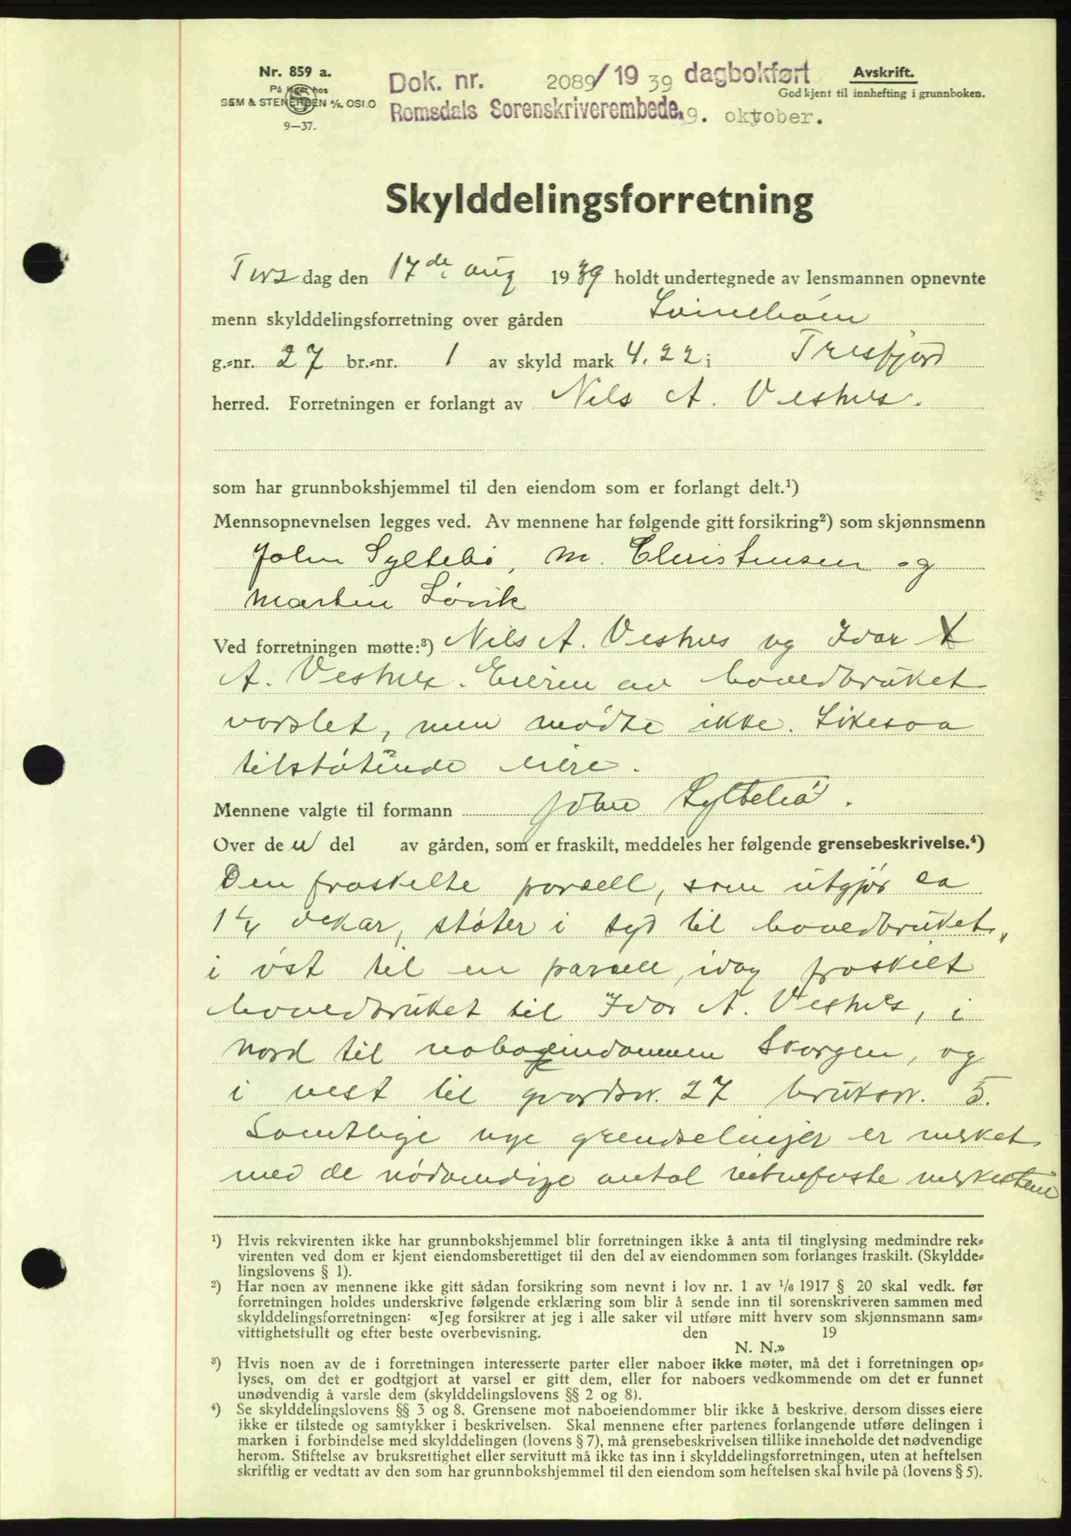 Nr. 859 a.
På lager hos
SEM & STENERSEN A/S, OSLO
9—37.
Dok. nr. 2089/1939 dagbokført
Romsdals Sorenskriverembede, 9. oktober.
Avskrift.
Godkjent til innhefting i grunnboken.
Skylddelingsforretning
Torsdag den 17de aug 1939 holdt undertegnede av lensmannen opnevnte
menn skylddelingsforretning over gården
g.-nr. 27 br.-nr. 1 av skyld mark 4.22 i Tresfjord
herred. Forretningen er forlangt av Nils A. Vestnes.
som har grunnbokshjemmel til den eiendom som er forlangt delt.¹)
Mennsopnevnelsen legges ved. Av mennene har følgende gitt forsikring²) som skjønnsmenn
John Syltebø, M. Christensen og
Martin Løvik
Ved forretningen møtte:³) Nils A. Vestnes og Ivar
A. Vestnes. Eieren av hovedbruket
varslet, men mødte ikke. Likesaa
tilstøtende eiere.
Mennene valgte til formann John Syltebø.
Over den del av gården, som er fraskilt, meddeles her følgende grensebeskrivelse.⁴)
Den fraskilte parsell, som utgjør ca
1 1/4 dekar, støter i syd til hovedbruket,
i øst til en parsell, idag fraskilt
hovedbruket til Ivar A. Vestnes, i
nord til naboeiendommen Skorgen, og
i vest til gaardsnr. 27 bruksnr. 5.
Samtlige nye grendselinjer er merket
med de nødvendige antal vitnefaste merkestene
¹) Hvis rekvirenten ikke har grunnbokshjemmel blir forretningen ikke å anta til tinglysing medmindre rek-
virenten ved dom er kjent eiendomsberettiget til den del av eiendommen som forlanges fraskilt. (Skyldde-
lingslovens § 1).
²) Har noen av mennene ikke gitt sådan forsikring som nevnt i lov nr. 1 av 1/6 1917 § 20 skal vedk. før
forretningen holdes underskrive følgende erklæring som blir å sende inn til sorenskriveren sammen med
skylddelingsforretningen: «Jeg forsikrer at jeg i alle saker vil utføre mitt hverv som skjønnsmann sam-
vittighetsfullt og efter beste overbevisning. den 19
N. N.»
³) Hvis noen av de i forretningen interesserte parter eller naboer ikke møter, må det i forretningen op-
lyses, om det er godtgjort at varsel er gitt dem, eller for naboers vedkommende om det er funnet
unødvendig å varsle dem (skylddelingslovens §§ 2 og 8).
⁴) Se skylddelingslovens §§ 3 og 8. Grensene mot naboeiendommer blir ikke å beskrive, dersom disses eiere
ikke er tilstede og samtykker i beskrivelsen. Skal mennene efter partenes forlangende utføre delingen i
marken i forbindelse med skylddelingen (lovens § 7), må grensebeskrivelsen tillike inneholde det nødvendige
herom. Stiftelse av bruksrettighet eller servitutt må ikke tas inn i skylddelingsforretningen, uten at heftelsen
skriftlig er vedtatt av den som har grunnbokshjemmel til den eiendom som heftelsen skal hvile på (lovens § 5).